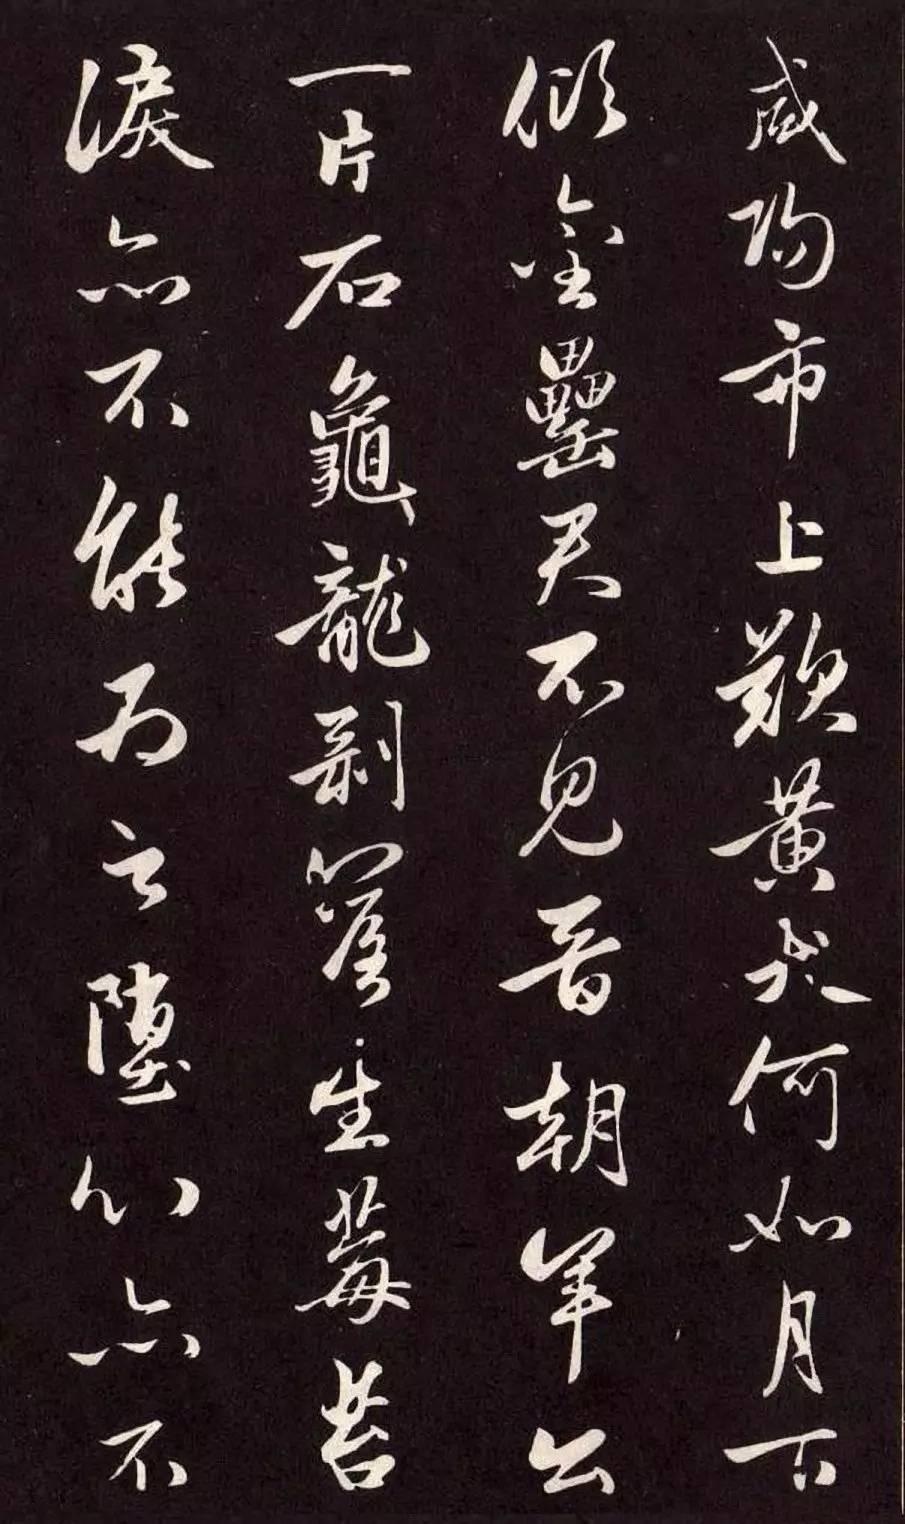 咸陽市上歎黃犬何如月下
傾金罍君不見晉朝羊公
一片石龜龍剥落生莓苔
淚亦不能為之墮心亦不